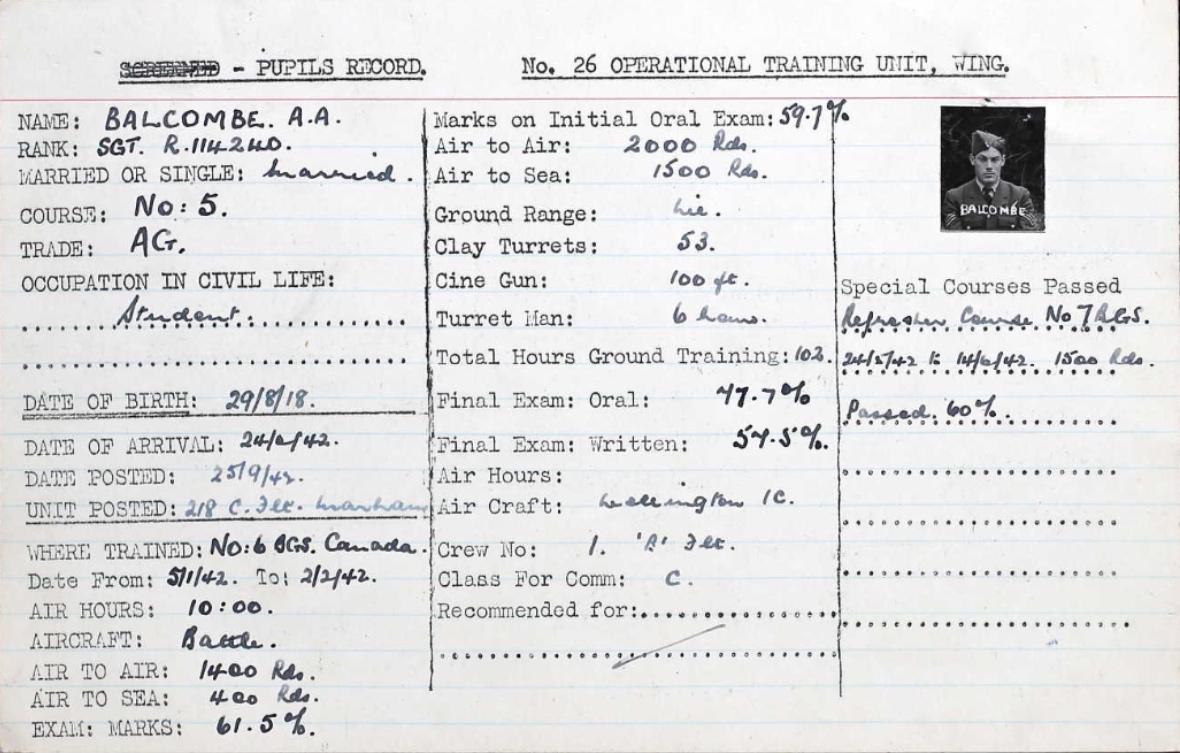 SCREENED - PUPILS RECORD.
No. 26 OPERATIONAL TRAINING UNIT, WING.
NAME: BALCOMBE. A.A.
RANK: SGT. R.114240.
MARRIED OR SINGLE: married.
COURSE: No: 5.
TRADE: AG.
OCCUPATION IN CIVIL LIFE:
Student.
DATE OF BIRTH: 29/8/18.
DATE OF ARRIVAL: 24/6/42.
DATE POSTED: 25/9/42.
UNIT POSTED: 218 C. Flt. Marham
WHERE TRAINED: No: 6 BGS. Canada.
Date From: 5/1/42. To: 2/2/42.
AIR HOURS: 10:00.
AIRCRAFT: Battle.
AIR TO AIR: 1400 Rds.
AIR TO SEA: 400 Rds.
EXAM: MARKS: 61.5%.
Marks on Initial Oral Exam: 59.7%
Air to Air: 2000 Rds.
Air to Sea: 1500 Rds.
Ground Range:
Clay Turrets: 53.
Cine Gun: 100 ft.
Turret Man: 6 hours.
Total Hours Ground Training: 102.
Final Exam: Oral: 77.7%
Final Exam: Written: 57.5%.
Air Hours:
Air Craft: Wellington 1C.
Crew No: 1. 'B' Flt.
Class For Comm: C.
Recommended for:
BALCOMBE
Special Courses Passed
Refresher Course No 7 AGS.
24/5/42 to 14/6/42. 1500 Rds.
Passed. 60%.